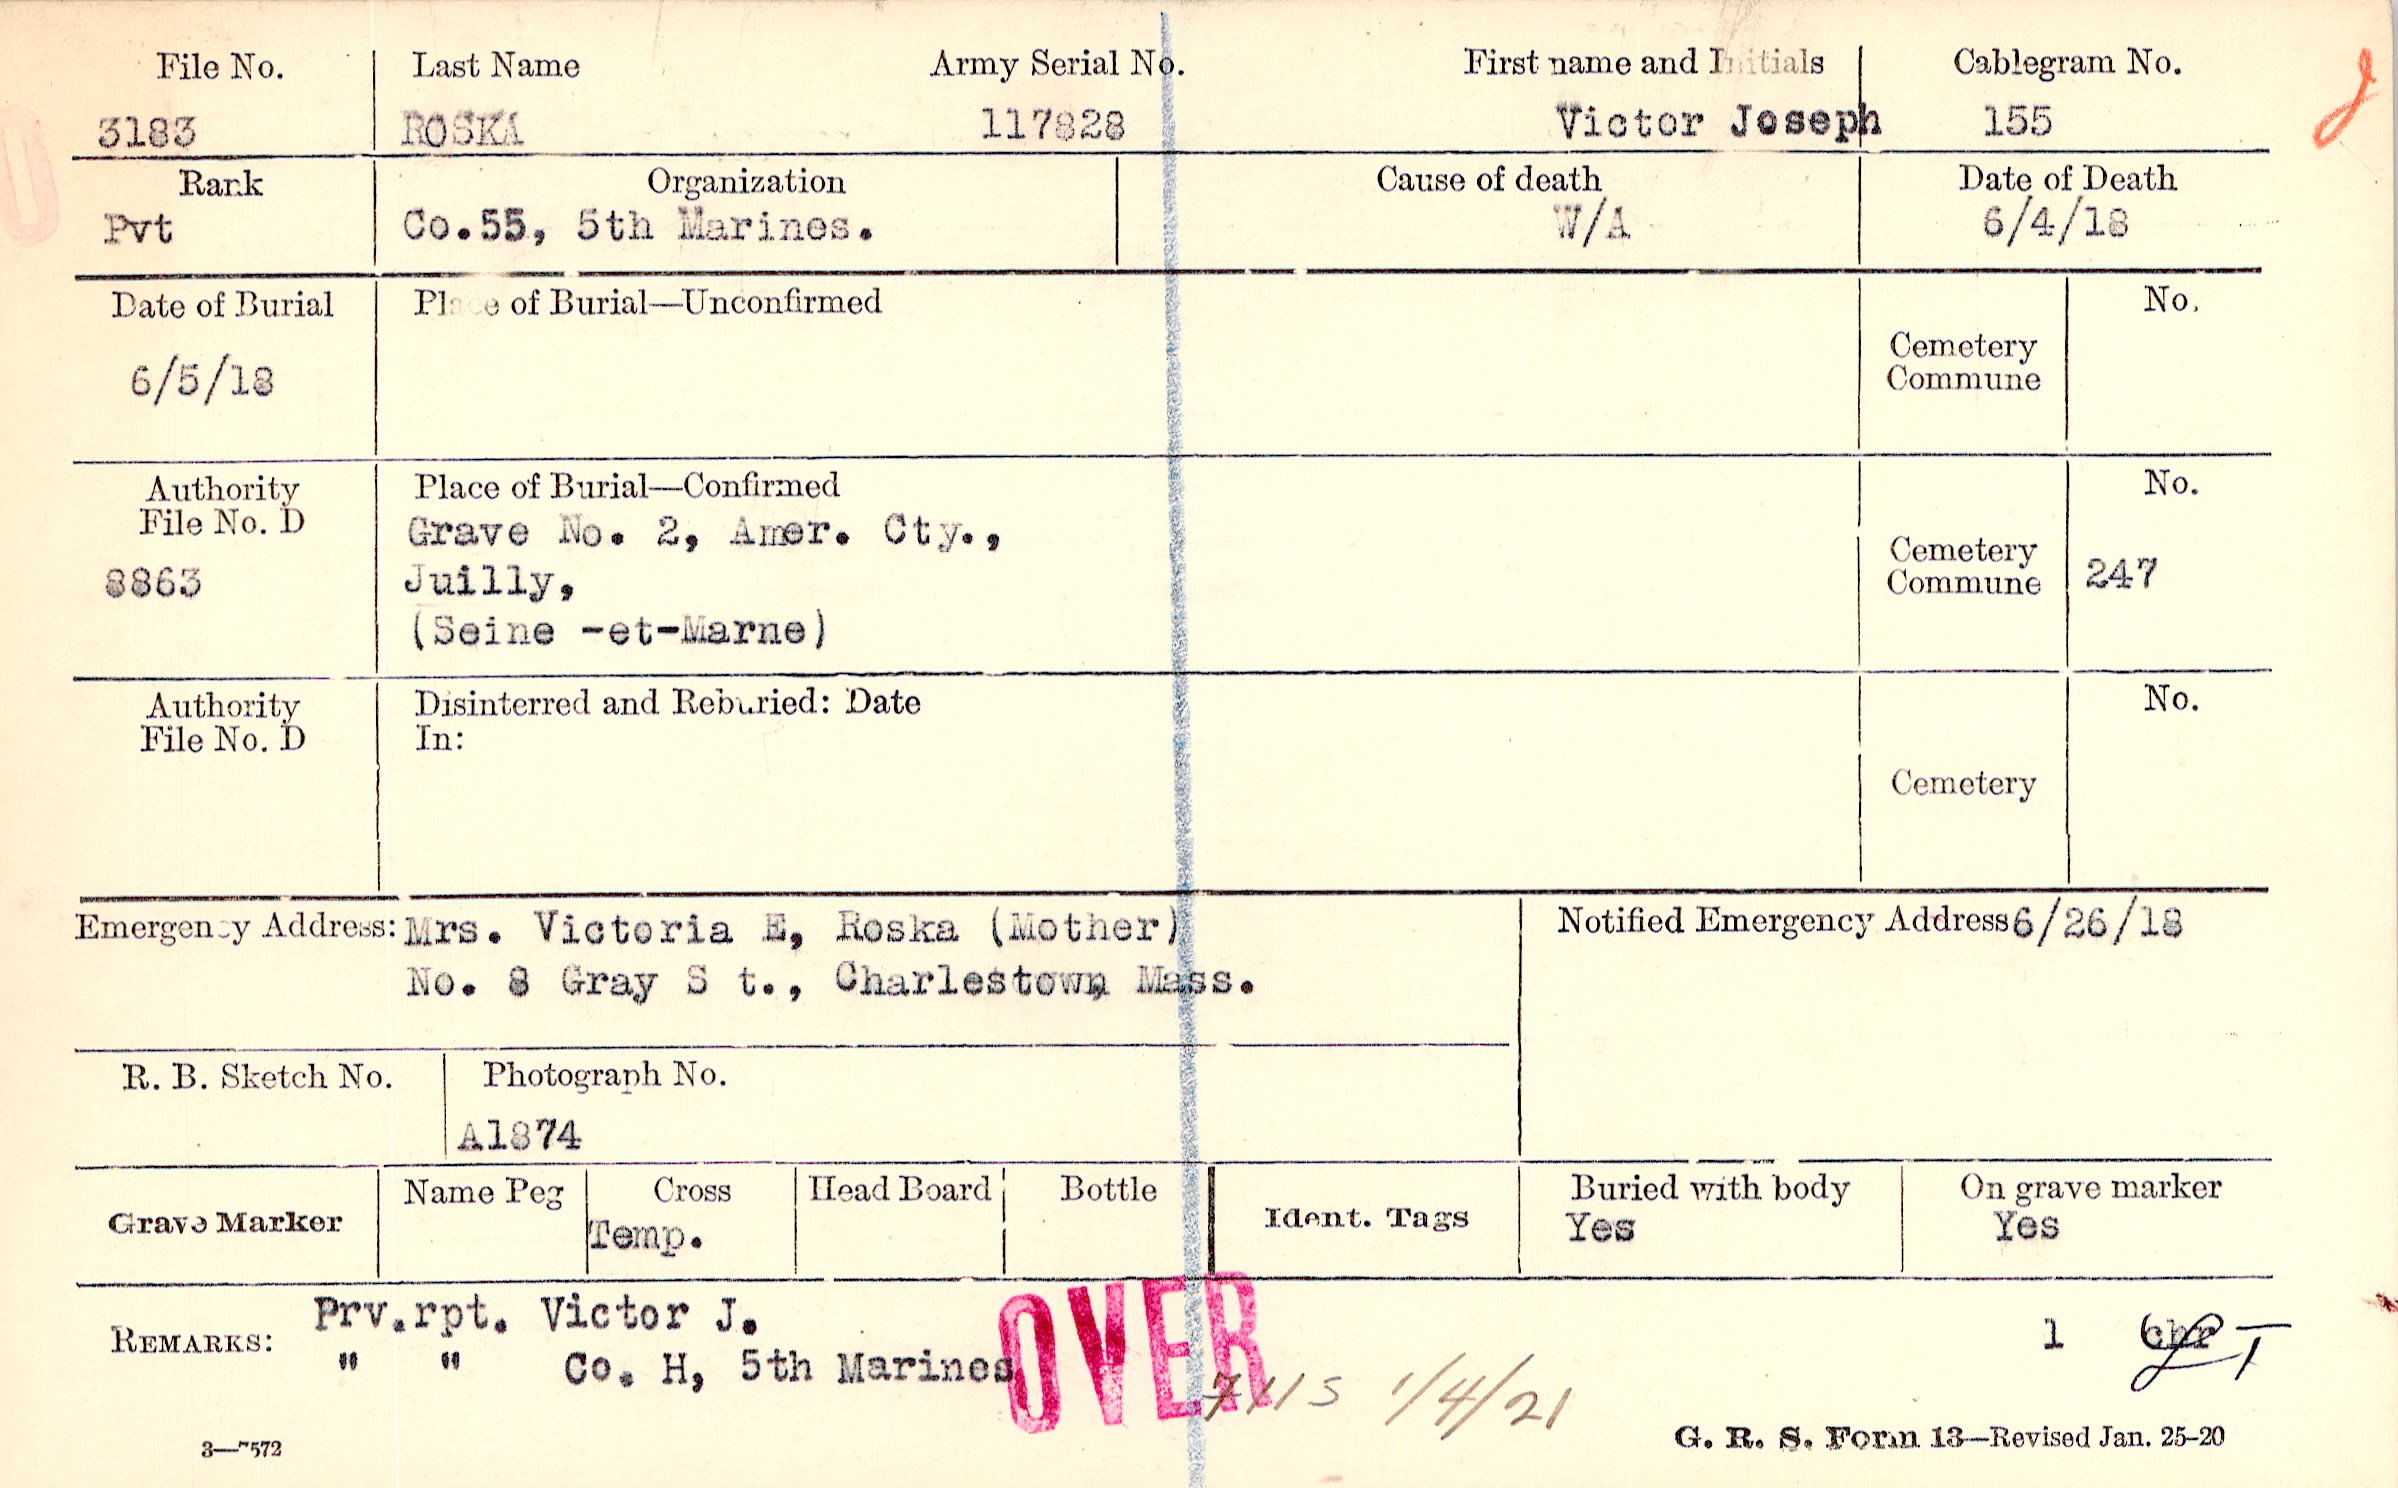 File No. Last Name Army Serial No. First name and Initials Cablegram No.
3183 ROSKA 117828 Victor Joseph 155
Rank Organization Cause of death Date of Death
Pvt Co.55, 5th Marines. W/A 6/4/18
Date of Burial Place of Burial—Unconfirmed No.
6/5/18 Cemetery
Commune
Authority Place of Burial—Confirmed No.
File No. D Grave No. 2, Amer. Cty.,
8863 Juilly, Cemetery
Commune 247
(Seine -et-Marne)
Authority Disinterred and Reburied: Date No.
File No. D In:
Cemetery
Emergency Address: Mrs. Victoria E, Roska (Mother) Notified Emergency Address 6/26/18
No. 8 Gray S t., Charlestown Mass.
R. B. Sketch No. Photograph No.
A1874
Grave Marker Name Peg Cross Head Board Bottle Ident. Tags Buried with body On grave marker
Temp. Yes Yes
REMARKS: Prv.rpt. Victor J. 1
" " Co. H, 5th Marines
OVER
1/4/21
3—7572 G. R. S. Form 13—Revised Jan. 25-20